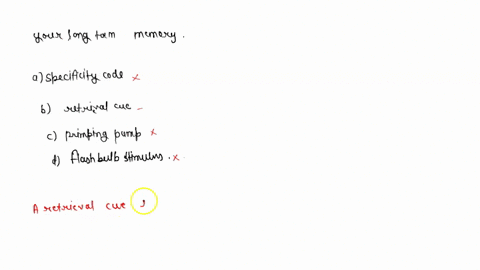 your long tarm memory.
a) specificity code x
b) retrival cue –
c) primping pump x
d) flash bulb stimulus. x
A retrieval cue